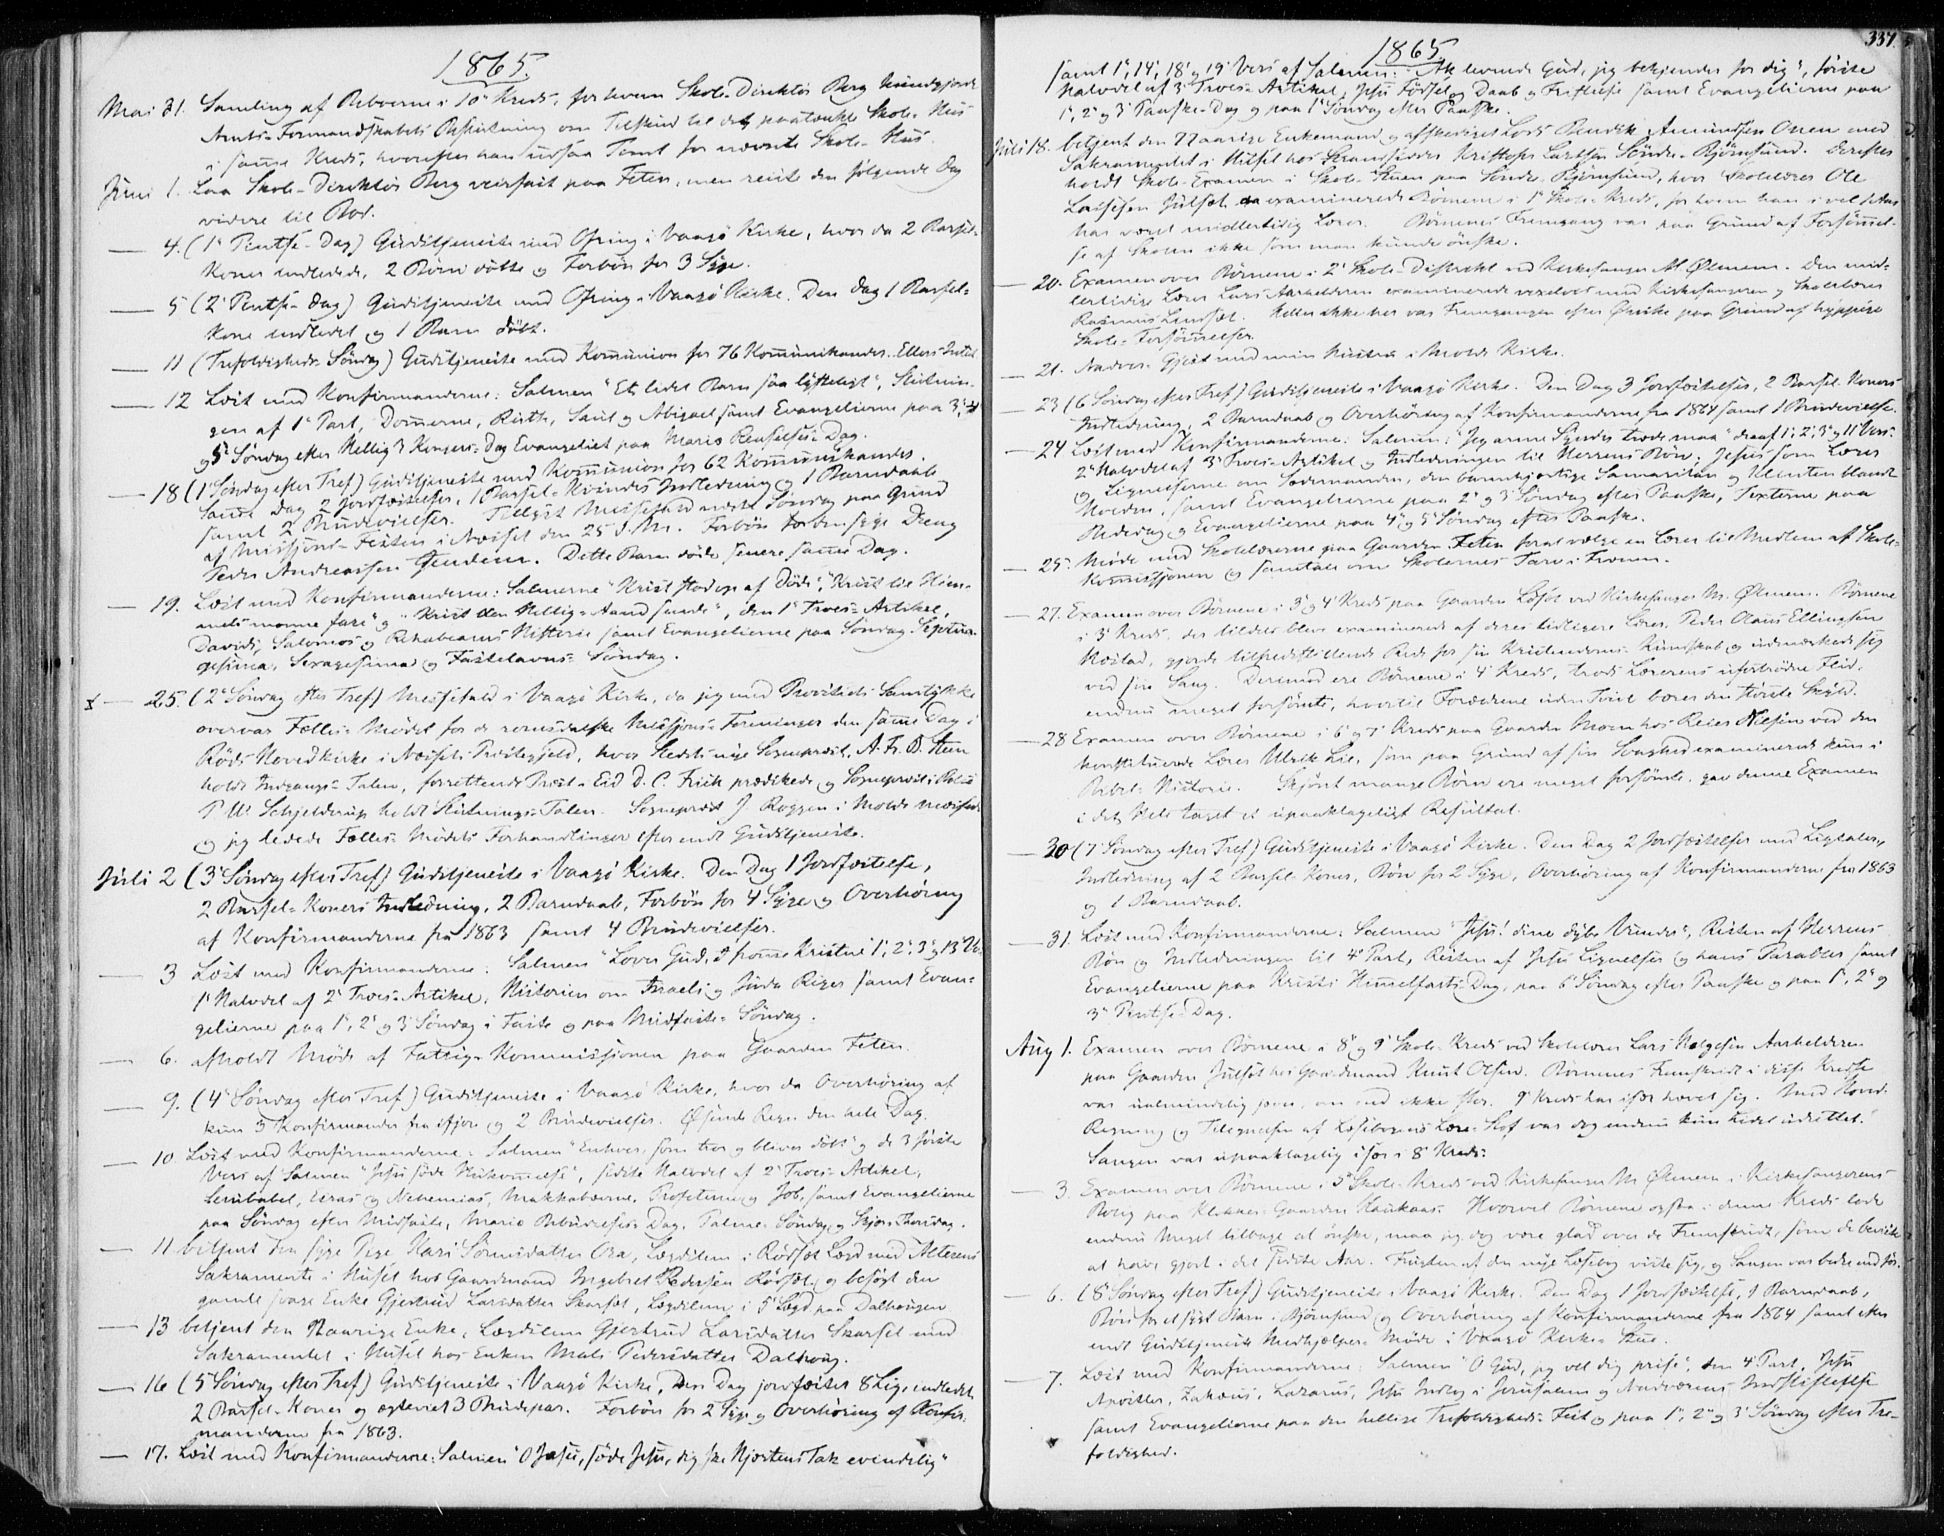 1865
Mai 31. Samling af Beboerne i 10de Kreds, for hvem Skole-Direktør Berg kundgjorde
Amts-Formandskabets Beslutning om Tilskud til det paatænkte Skole-Hus
i samme Kreds, hvorefter han udsaa Tomt for nævnte Skole-Hus.
Juni 1. Laa Skole-Direktør Berg veirfast paa Feten, men reiste den følgende Dag
videre til Bod.
— 4. (1e Pentse-Dag) Gudstjeneste med Ofring i Vaagø Kirke, hvor da 2 Barsel-
Koner indledede, 2 Børn døbte og Forbøn for 3 Syge.
— 5 (2e Pentse-Dag) Gudstjeneste med Ofring i Vaagø Kirke. Den Dag 1 Barsel-
kone indledet og 1 Barn døbt.
— 11 (Trefoldigheds-Søndag) Gudstjeneste med Kommunion for 76 Kommunikander. Ellers Intet
— 12 Læst med Konfirmanderne: Salmen "Et lidet Barn saa lysteligt", Slutnin-
gen af 1e Part, Dommerne, Ruth, Saul og Abigael samt Evangelierne paa 3e, 4e
og 5e Søndag efter Hellig 3 Kongers-Dag Evangeliet paa Mariæ Renselses-Dag.
— 18 (1e Søndag efter Tref) Gudstjeneste med Kommunion for 62 Kommunikander.
Samme Dag 2 Jordfæstelser, 1 Barsel-Kvindes Indledning og 1 Barnedaab
samt 2 Brudevielser. Tillyst Messefald næste Søndag paa Grund
af Missions-Festen i Næsset den 25 d. M. Forbøn for den syge Dreng
Peder Andreassen Judem. Dette Barn døde senere samme Dag.
— 19. Læst med Konfirmanderne: Salmerne "Krist stod op af Døde", "Krist til Him-
mels monne fare" og "Krist den Hellig-Aand sendte", den 1e Troes-Artikel,
Davids, Salomos og Rehabeams Historie samt Evangelierne paa Søndag Septua-
gesima, Sexagesima og Fastelavns-Søndag.
x — 25. (2e Søndag efter Tref) Messefald i Vaagø Kirke, da jeg med Provstiets Samtykke
overvar Fælles-Mødet for de romsdalske Missions-Foreninger den samme Dag i
Røds Hovedkirke i Næssets Præstegjeld, hvor Stedets nye Sognepræst, A. Fr. B. Steen
holdt Indgangs-Talen, forrettende Præst i Eid D. C. Friis prædikede og Sognepræst i
P. W. Schjelderup holdt Slutnings-Talen. Sognepræst J. Roggen i Molde messede
og jeg ledede Fælles-Mødets Forhandlinger efter endt Gudstjeneste.
Juli 2 (3e Søndag efter Tref) Gudstjeneste i Vaagø Kirke. Den Dag 1 Jordfæstelse,
2 Barsel-Koners Indledning, 2 Barnedaab, Forbøn for 4 Syge og Overhøring
af Konfirmanderne fra 1863 samt 4 Brudevielser.
— 3 Læst med Konfirmanderne: Salmen "Lover Gud, I fromme Kristne 1e, 2e, 3e og 13 V.
1e Halvdel af 2e Troes-Artikel, Historien om Israels og Juda Riger samt Evan-
gelierne paa 1e, 2e og 3e Søndag i Faste og paa Midfaste-Søndag.
— 6. afholdt Møde af Fattig-Kommissionen paa Gaarden Feten.
— 9. (4e Søndag efter Tref) Gudstjeneste i Vaagø Kirke, hvor da Overhøring af
kun 3 Konfirmander fra ifjor og 2 Brudevielser. Øsende Regn den hele Dag.
— 10 Læst med Konfirmanderne: Salmen "Enhver, som tror og bliver døbt" og de 3 første
Vers af Salmen "Jesu søde Hukommelse", sidste Halvdel af 2e Troes-Artikel,
Serubabel, Esras og Nehemias, Makkabæerne, Profeterne og Job, samt Evangelierne
paa Søndag efter Midfaste, Mariæ Bebudelses-Dag, Palme-Søndag og Skjær-Thorsdag.
— 11 betjent den syge Pige Kari Sørensdatter Ora, Lægdslem i Rødsæt Lægd med Alterens
Sakramente i Huset hos Gaardmand Ingebret Pedersen Rødsæt og besøgt den
gamle svage Enke Gjertrud Larsdatter Skarset, Lægdslem i 5e Lægd paa Dalhaugen
— 13 betjent den aarige Enke, Lægdslem Gjertrud Larsdatter Skarset med
Sakramentet i Huset hos Enken Mali Pedersdatter Dalhaug.
— 16 (5e Søndag efter Tref) Gudstjeneste i Vaagø Kirke, Den Dag jordfæstet 8 Lig, indledet
2 Barsel-Koner og ægteviet 3 Brudepar. Forbøn for 2 Syge og Overhøring af Konfir-
manderne fra 1863.
— 17. Læst med Konfirmanderne: Salmen "O Jesu, søde Jesu, dig ske Hjertens Tak evindelig"
337.
1865
samt 1e, 14e, 18e og 19e Vers af Salmen: "Ak levende Gud, jeg bekjender for dig", første
Halvdel af 3e Troes-Artikel, Jesu Fødsel og Daab og Fristelse samt Evangelierne paa
1e, 2e og 3e Paaske-Dag og paa 1e Søndag efter Paaske.
Juli 18. betjent den aarige Enkemand og afskediget Lods Bendik Amundsen Onen med
Sakramentet i Huset hos Strandsidder Kristofer Larsen Søndre-Bjørnsund. Derefter
holdt Skole-Examen i Skole-Stuen paa Søndre Bjørnsund, hvor Skolelærer Ole
Lassesen Julset examinerede Børnene i 1e Skole-Kreds, for hvem han i vel
har været midlertidig Lærer. Børnenes Fremgang var paa Grund af Forsømmel-
se af Skolen ikke som man kunde ønske.
— 20. Examen over Børnene i 2e Skole-Distrikt ved Kirkesanger M. Ølmem. Den mid-
lertidige Lærer Lars Aarhelderen examinerede vexelvis med Kirkesangeren og Skolelærer
Rasmus Lindset. Heller ikke her var Fremgangen efter Ønske paa Grund af hyppige
Skole-Forsømmelser.
— 21. Nadver-Gjest med min Hustru i Molde Kirke.
— 23 (6e Søndag efter Tref) Gudstjeneste i Vaagø Kirke. Den Dag 3 Jordfæstelser, 2 Barsel-Koners
Indledning, 2 Barnedaab og Overhøring af Konfirmanderne fra 1864 samt 1 Brudevielse.
— 24 Læst med Konfirmanderne: Salmen: "Jeg arme Synder træde maa" deraf 1e, 2e, 3e og 11 Vers.
2e Halvdel af 3e Troes-Artikel og Indledningen til Herrens Bøn; Jesus som Lærer
og Lignelserne om Sædemanden, den barmhjertige Samaritan og Klinten blandt
Hveden, samt Evangelierne paa 2e og 3e Søndag efter Paaske, Texterne paa
Bededag og Evangelierne paa 4e og 5e Søndag efter Paaske.
— 25. Møde med Skolelærerne paa Gaarden Feten for at vælge en Lærer til Medlem af Skole-
Kommissionen og samtale om Skolernes Tarv i Troen.
— 27. Examen over Børnene i 3e og 4e Kreds paa Gaarden Læset ved Kirkesanger M. Ølmem. Børnene
i 3e Kreds, der tildels blev examinerede af deres tidligere Lærer, Peder Olaus Ellingsen
Hostad, gjorde tilfredsstillende Rede for sin Kristendoms-Kundskab og udmærkede sig
ved sin Sang. Derimod ere Børnene i 4e Kreds, trods Lærerens ufortrødne Flid,
endnu meget forsømte, hvortil Forældrene uden Tvivl bærer den største Skyld.
— 28 Examen over Børnene i 6e og 7e Kreds paa Gaarden Moen hos Reier Nilsen ved den
konstituerede Lærer Ulrik Lie, som paa Grund af sin Svaghed examinerede kun i
Bibel-Historie. Skjønt mange Børn ere meget forsømte, gav denne Examen
i det Hele taget et upaaklageligt Resultat.
— 30 (7e Søndag efter Tref) Gudstjeneste i Vaagø Kirke. Den Dag 2 Jordfæstelser med Ligtaler,
Indledning af 2 Barsel-Koner, Bøn for 2 Syge, Overhøring af Konfirmanderne fra 1863
og 1 Barnedaab.
— 31. Læst med Konfirmanderne: Salmen "Jesu! dine dybe Vunder", Resten af Herrens
Bøn og Indledningen til 4e Part, Resten af Jesu Lignelser og hans Parabler samt
Evangelierne paa Kristi Himmelfarts-Dag, paa 6e Søndag efter Paaske og paa 1e, 2e og
3e Pentse-Dag.
Aug 1. Examen over Børnene i 8e og 9e Skole-Kreds ved Skolelærer Lars Helgesen Aarhelderen
paa Gaarden Julset hos Gaardmand Knut Olsen. Børnenes Fremskridt i disse Kredse
var ualmindelig jævn, om end ikke stor. 9e Kreds har især hævet sig. Med Hoved-
Regning og Tilegnelse af Læsebogens Lære-Stof var dog endnu kun lidet udrettet.
Sangen var upaaklagelig især i 8e Kreds.
— 3. Examen over Børnene i 5e Skole-Kreds ved Kirkesanger M. Ølmem i Kirkesangerens
Bolig paa Klokker-Gaarden Haukaas. Hvorvel Børnene ogsaa i denne Kreds lade
endnu Meget tilbage at ønske, maa jeg dog være glad over de Fremskridt, som de beviste
at have gjort i det sidste Aar. Frugten af den nye Læsebog viste sig, og Sangen var bedre end før.
— 6. (8e Søndag efter Tref) Gudstjeneste i Vaagø Kirke. Den Dag 1 Jordfæstelse, 1 Barnedaab,
Bøn for et sygt Barn i Bjørnsund og Overhøring af Konfirmanderne fra 1864 samt efter
endt Gudstjeneste Medhjælper-Møde i Vaagø Kirke-Stue.
— 7. Læst med Konfirmanderne: Salmen "O Gud, jeg vil dig prise", den 4e Part, Jesu
Apostler, Zakæus, Lazarus, Jesu Indtog i Jerusalem og Nadverens Indstiftelse
samt Evangelierne paa den hellige Trefoldigheds-Fest og paa 1e, 2e og 3e Søndag efter Tre-
foldighed.